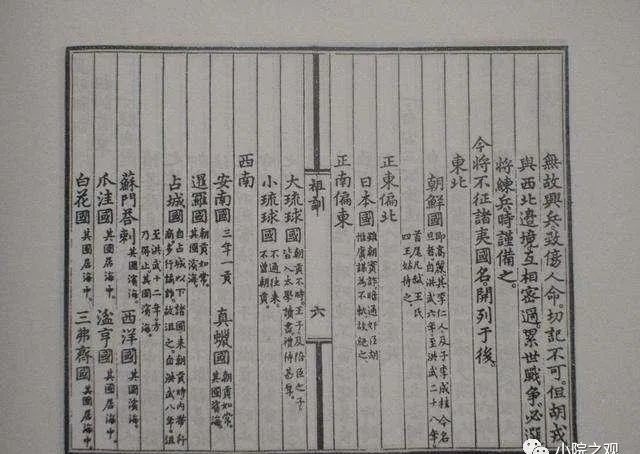 無故興兵致傷人命。切記不可。但胡戎
與西北邊境。互相密邇。累世戰爭。必選
將練兵時謹備之。
今將不征諸夷國名。開列于後。
東北
朝鮮國 即高麗其李仁人及子李成桂今名
旦者自洪武六年至洪武二十八年
首尾凡弒王氏
四王姑待之。
正東偏北
日本國 雖朝貢詐暗通奸臣胡
惟庸謀為不軌故絕之。
正南偏東
大琉球國 朝貢不時。王子及陪臣之子
皆入太學讀書。禮待甚厚。
小琉球國 不通往來。
不曾朝貢。
西南
安南國 三年一貢 真蠟國 朝貢如常。
其國濱海。
暹羅國 朝貢如常。
其國濱海。
占城國 自占城以下諸國來朝貢時內帶行
商多行譎詐故沮之自洪武八年沮
至洪武十二年方
乃得止其國濱海。
蘇門荅剌 其國濱海。 西洋國 其國濱海。
爪洼國 其國居海中。 湓亨國 其國居海中。
白花國 其國居海中。 三弗齊國 其國居海中。
祖訓
六
小院之观